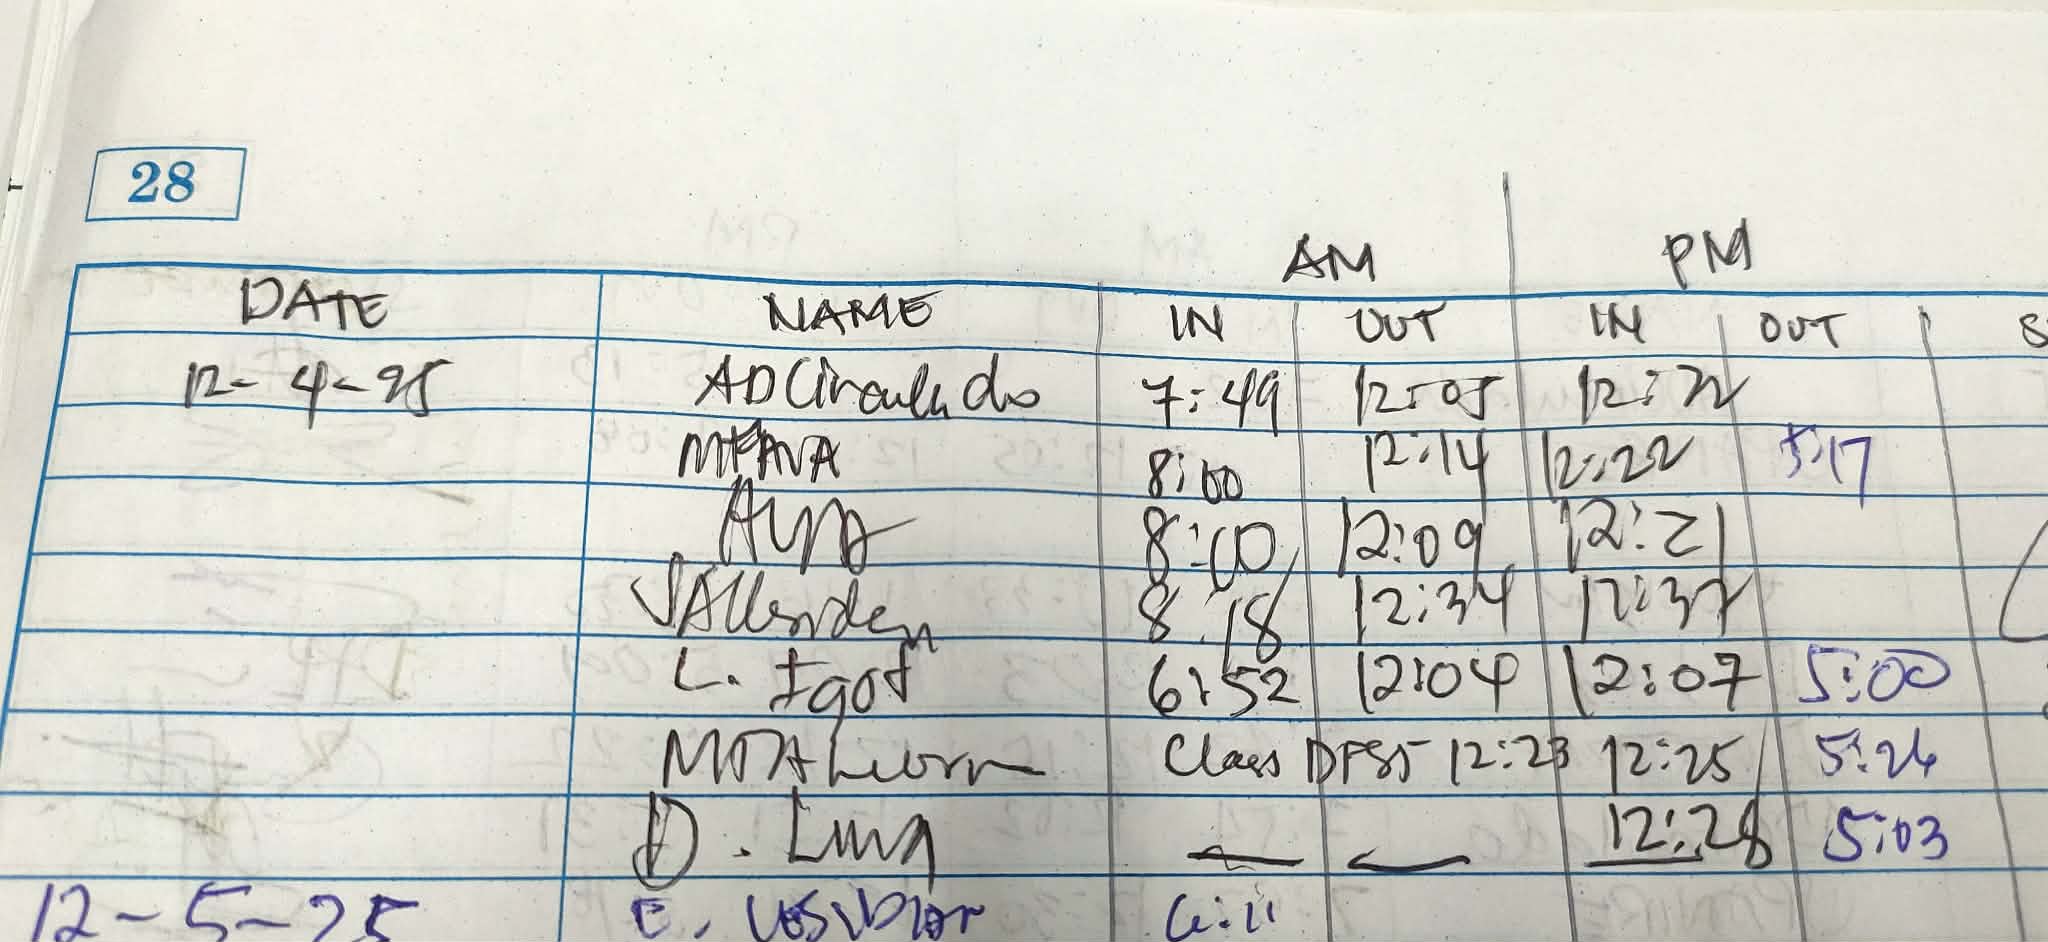 28
AM PM
DATE NAME IN OUT IN OUT
12-4-25 AD Circulado 7:49 12:05 12:22
MFAVA 8:00 12:14 12:22 5:17
8:00 12:09 12:21
8:18 12:34 12:37
L. Igot 6:52 12:04 12:07 5:00
Class 12:23 12:25 5:26
D. Luna — — 12:28 5:03
12-5-25 6:11